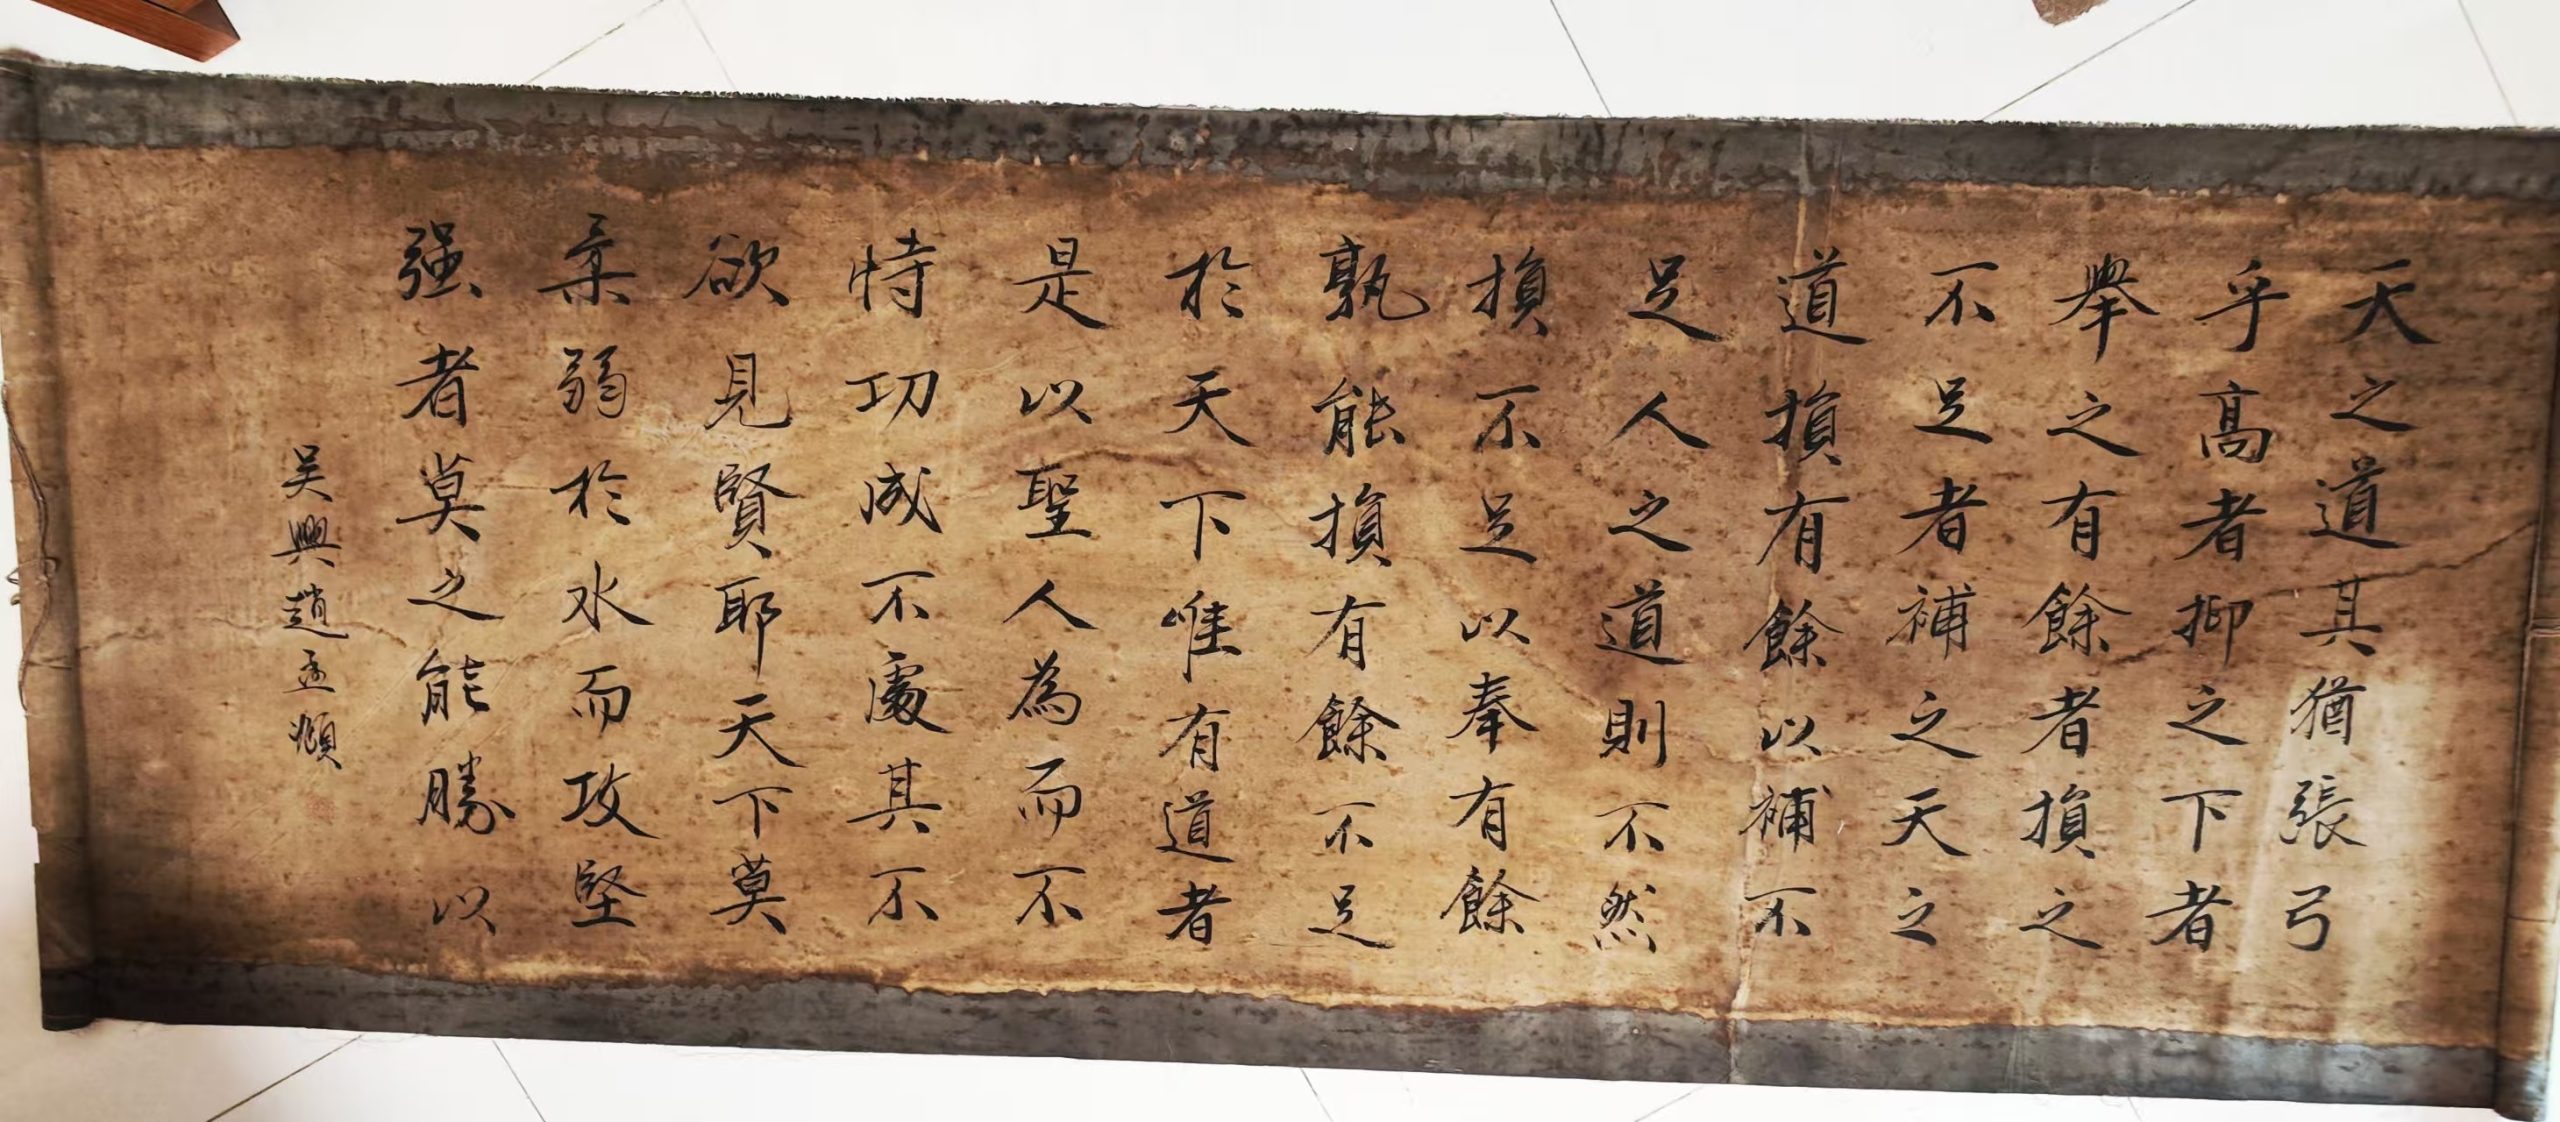 天之道其猶張弓
乎高者抑之下者
舉之有餘者損之
不足者補之天之
道損有餘以補不
足人之道則不然
損不足以奉有餘
孰能損有餘不足
於天下唯有道者
是以聖人為而不
恃功成不處其不
欲見賢耶天下莫
柔弱於水而攻堅
强者莫之能勝以
吴興趙孟頫